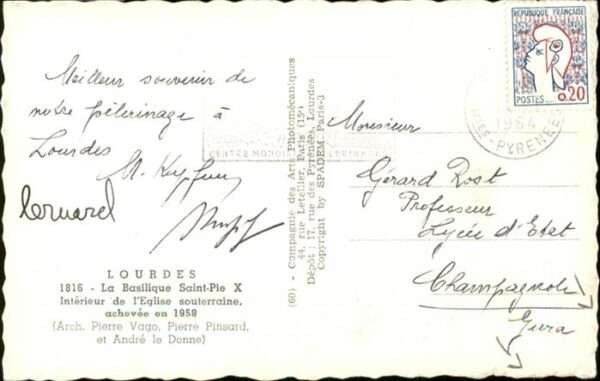 Meilleur souvenir de
notre pèlerinage à
Lourdes
LOURDES
1816 - La Basilique Saint-Pie X
Intérieur de l'Eglise souterraine,
achevée en 1958
(Arch. Pierre Vago, Pierre Pinsard,
et André le Donne)
(60) - Compagnie des Arts Photomécaniques
44, rue Letellier, Paris (15e)
Dépôt : 17, rue des Pyrénées, Lourdes
Copyright by SPADEM Paris-3
REPUBLIQUE FRANÇAISE
POSTES
0.20
1964
PYRENEES
Monsieur
Gérard Rost
Professeur
Lycée d'Etat
Champagnole
Jura